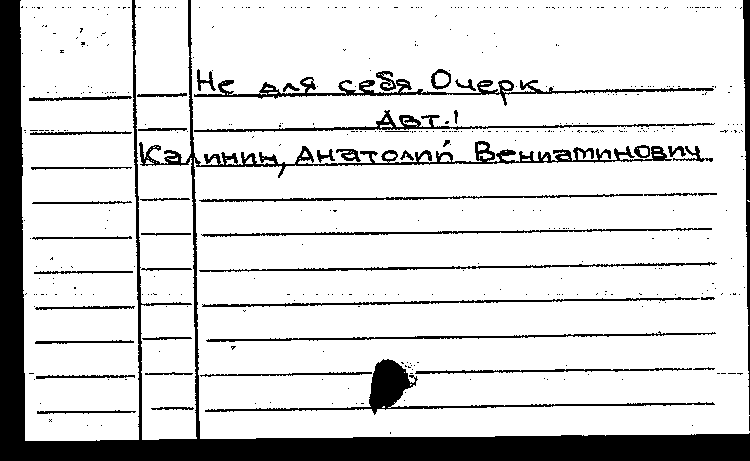 Не для себя. Очерк.
Авт.:
Калинин, Анатолий Вениаминович